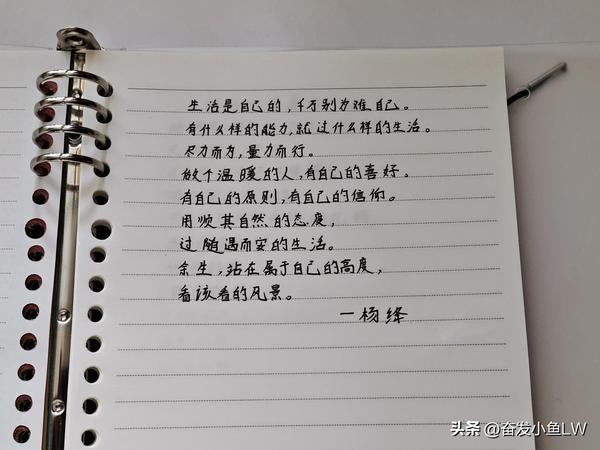 生活是自己的,千万别为难自己。
有什么样的能力,就过什么样的生活。
尽力而为,量力而行。
做个温暖的人,有自己的喜好。
有自己的原则,有自己的信仰。
用顺其自然的态度,
过随遇而安的生活。
余生,站在属于自己的高度,
看该看的风景。
一杨绛
头条 @奋发小鱼LW